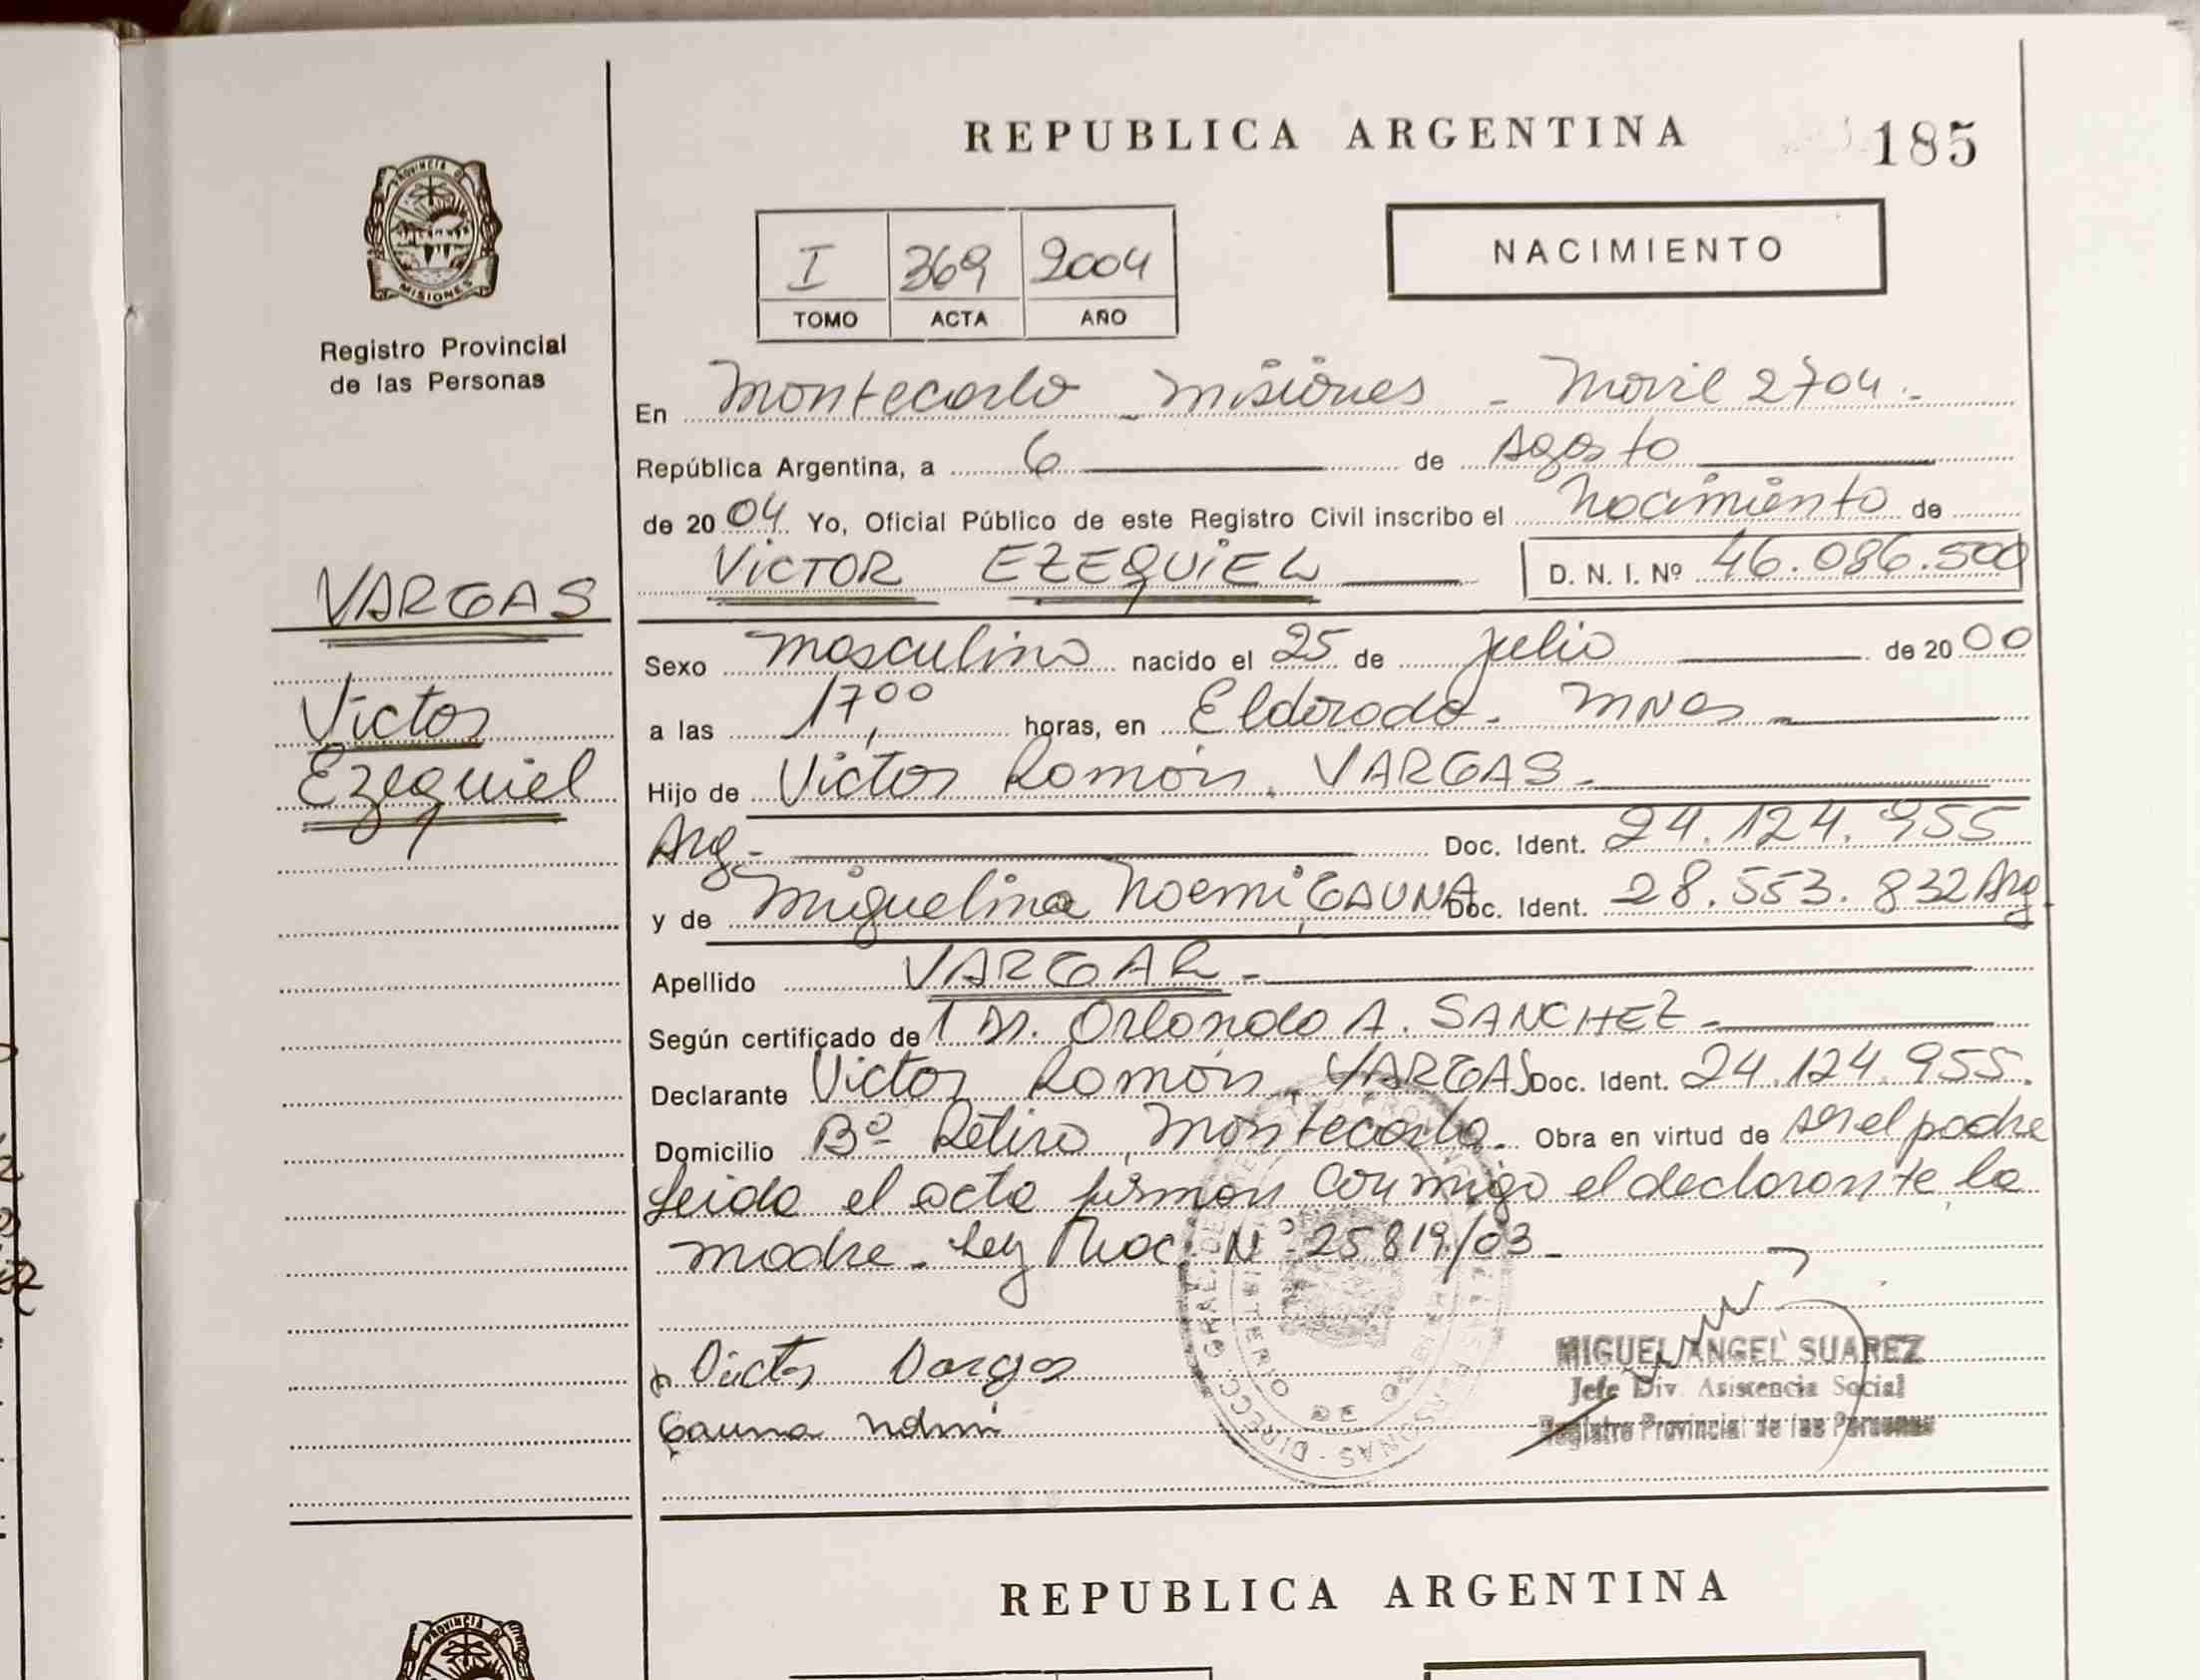 REPUBLICA ARGENTINA
185
PROVINCIA D
MISIONES
Registro Provincial
de las Personas
I 369 2004
TOMO ACTA AÑO
NACIMIENTO
En Montecarlo - Misiones - Movil 2704.-
República Argentina, a 6 de Agosto
de 2004 Yo, Oficial Público de este Registro Civil inscribo el Nacimiento de
VICTOR EZEQUIEL D. N. I. Nº 46.086.500
VARGAS
Victor
Ezequiel
Sexo Masculino nacido el 25 de Julio de 2000
a las 17,00 horas, en Eldorado - MNES -
Hijo de Victor Ramón, VARGAS -
Arg - Doc. Ident. 24.124.955
y de Miguelina Noemi, GAUNA Doc. Ident. 28.553.832 Arg.
Apellido VARGAR -
Según certificado del Dr. Orlando A. SANCHEZ -
Declarante Victor Ramón, VARGAS Doc. Ident. 24.124.955.
Domicilio Bº Retiro, Montecarlo. Obra en virtud de ser el padre
Leida el acta firman conmigo el declarante, la
madre. Ley Nac. Nº 25819/03 -
Victor Vargas
Gauna Nohmi
MIGUEL ANGEL SUAREZ
Jefe Div. Asistencia Social
Registro Provincial de las Personas
REPUBLICA ARGENTINA
PROVINCIA D